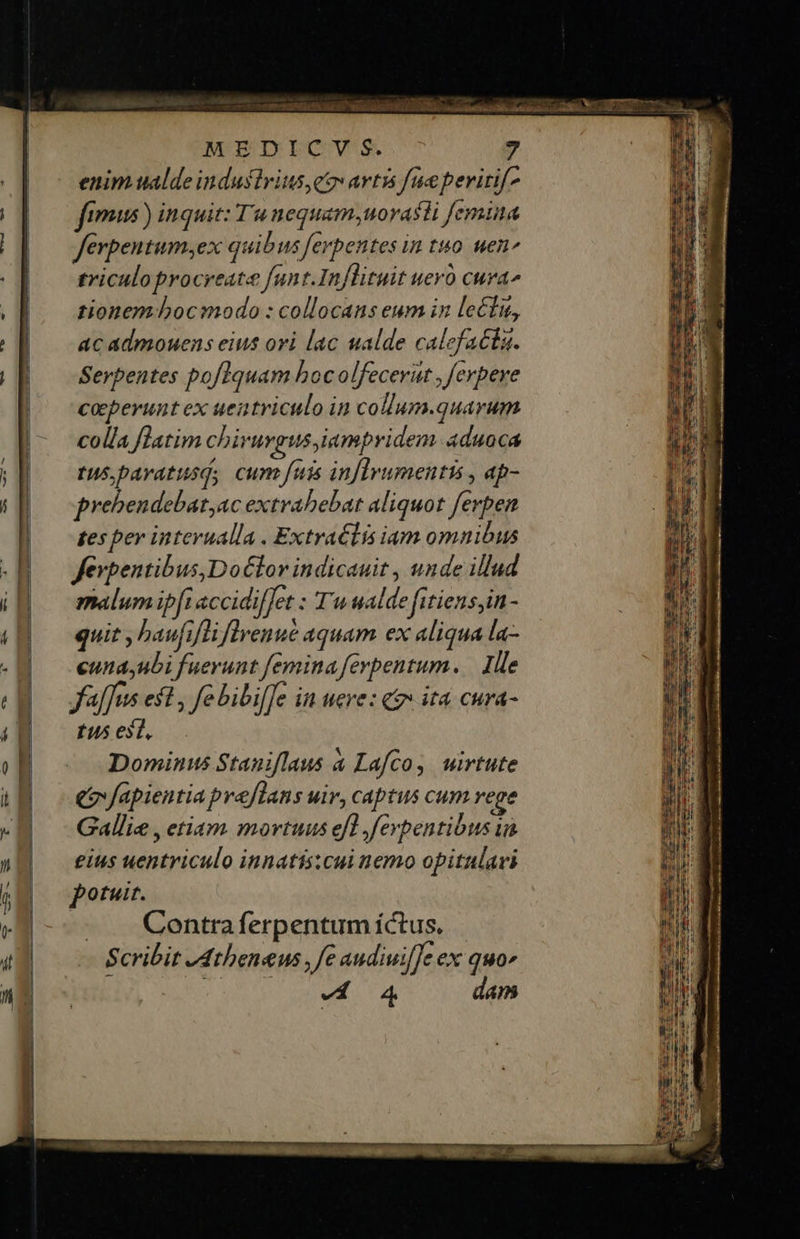 MEDICVS. 7
enim ualde industrius, & artis suæ peritis-
simus) inquit: Tu nequam, uorasti semina
serpentum, ex quibus serpentes in tuo uen-
triculo procreatæ sunt. Instituit uerò cura-
tionem hoc modo: collocans eum in lectū,
ac admouens eius ori lac ualde calefactū.
Serpentes postquam hoc olfecerūt, serpere
cœperunt ex uentriculo in collum. quarum
colla statim chirurgus, iampridem aduoca
tus, paratusq; cum suis instrumentis, ap-
prehendebat, ac extrahebat aliquot serpen
tes per interualla. Extractis iam omnibus
serpentibus, Doctor indicauit, unde illud
malum ipsi accidisset: Tu ualde sitiens, in-
quit, hausisti strenuè aquam ex aliqua la-
cuna, ubi fuerunt semina serpentum. Ille
fassus est, se bibisse in uere: & ita cura-
tus est.
Dominus Stanislaus à Lasco, uirtute
& sapientia præstans uir, captus cum rege
Galliæ, etiam mortuus est, serpentibus in
eius uentriculo innatis: cui nemo opitulari
potuit.
Contra serpentum ictus.
Scribit Athenæus, se audiuisse ex quo-
A 4 dam